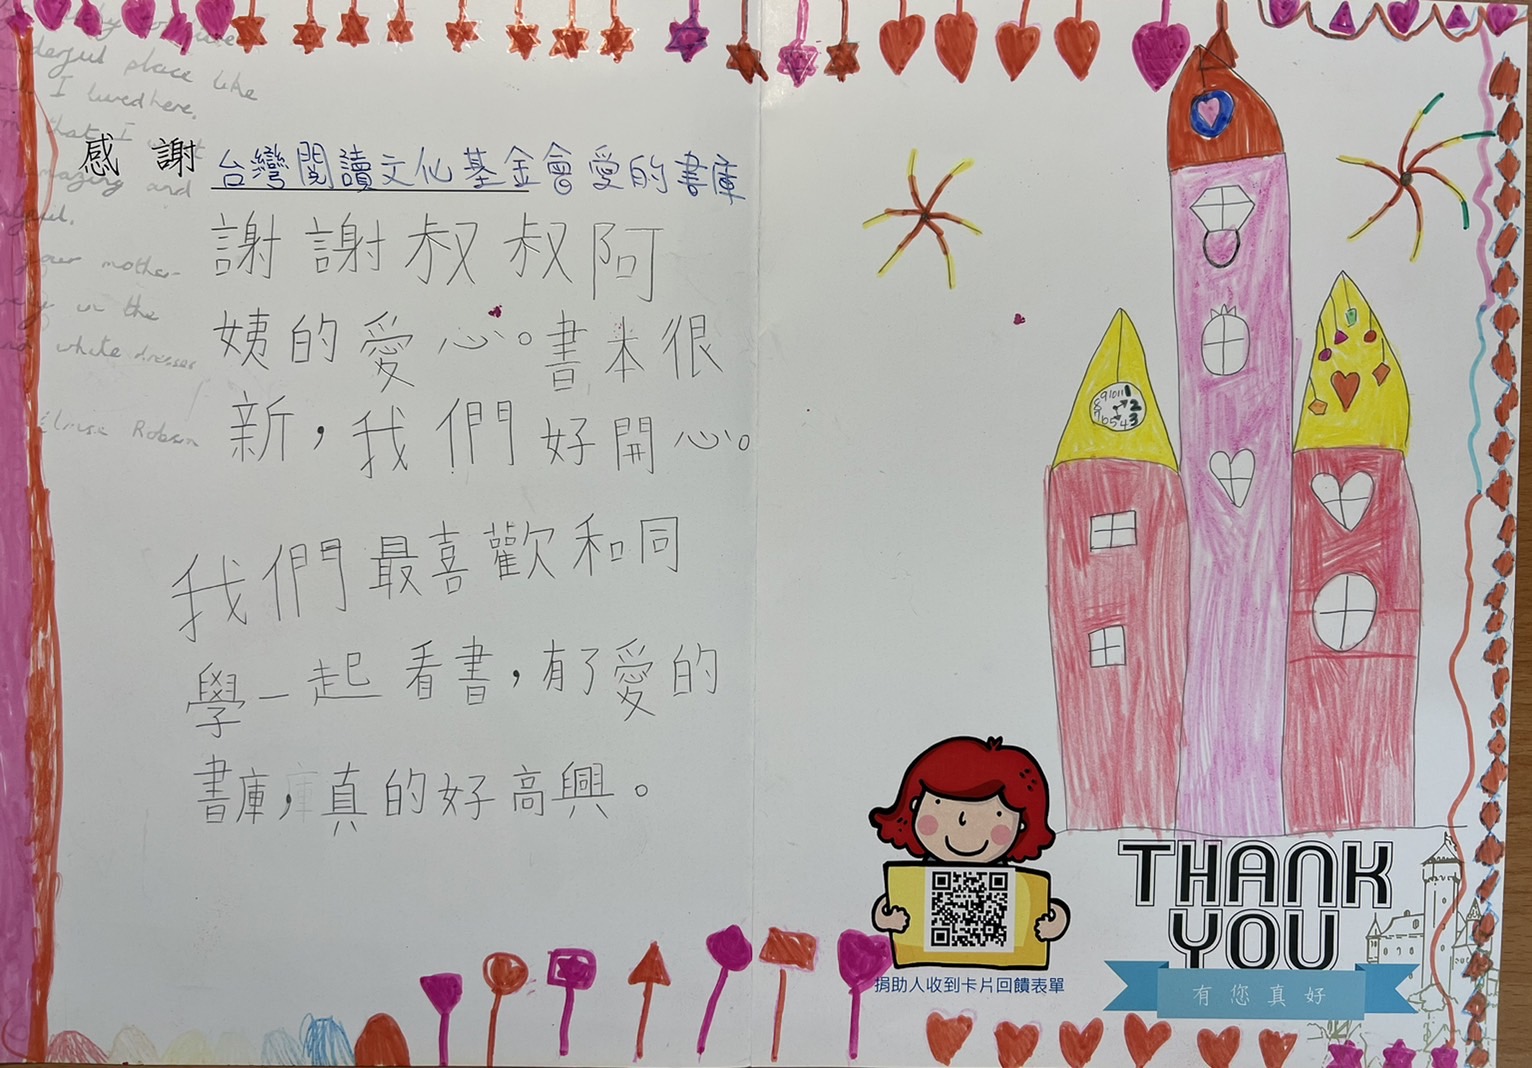 wonderful place like
I lived here.
that I
amazing and
your mother
in the
white dresses
Robson
感謝 台灣閱讀文化基金會愛的書庫
謝謝叔叔阿
姨的愛心。書本很
新,我們好開心。
我們最喜歡和同
學一起看書,有了愛的
書庫,真的好高興。
9 10 11 1
8 2
7 6 5 4 3
捐助人收到卡片回饋表單
THANK
YOU
有您真好